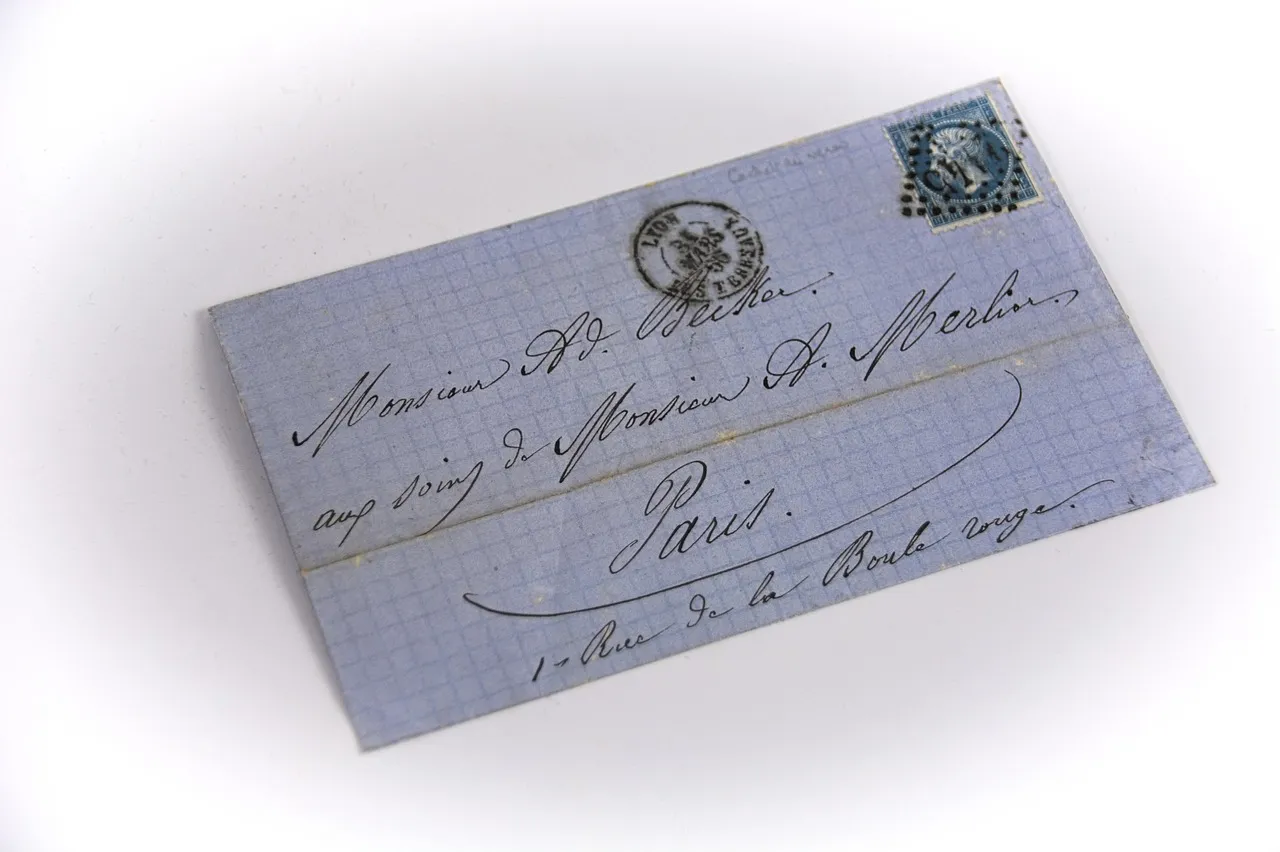 LYON LES TERREAUX
MARS
Monsieur Ad. Becker.
aux soins de Monsieur A. Merlior.
Paris.
1 - Rue de la Boule rouge.